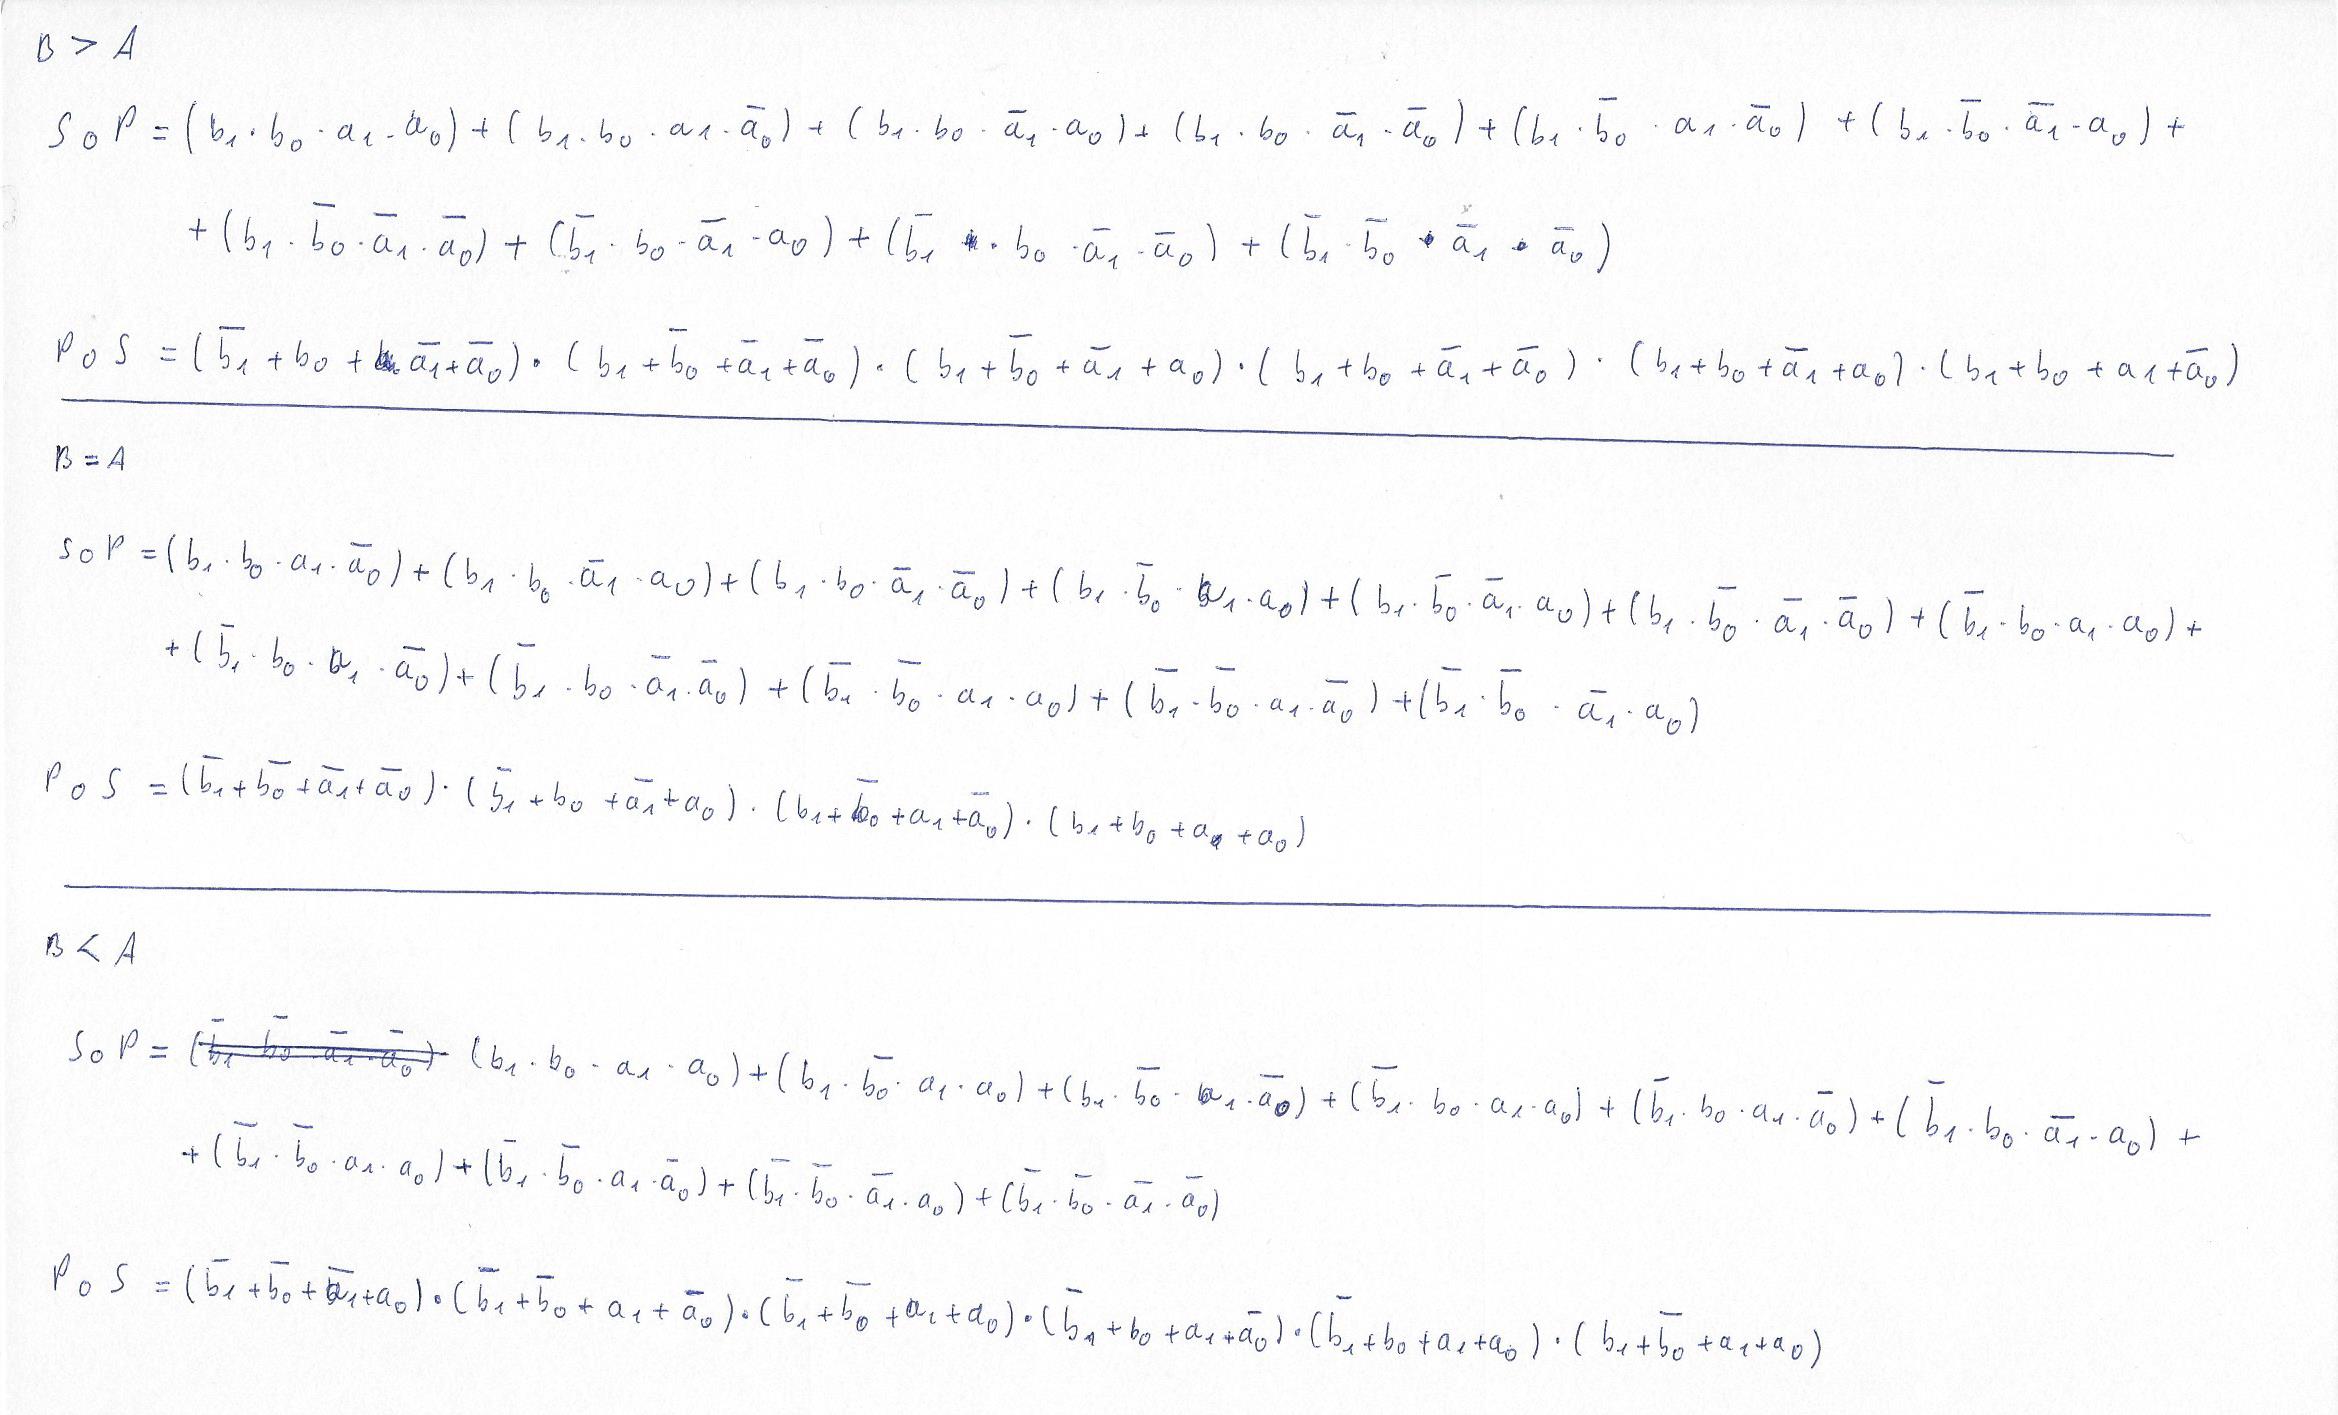 B > A
SoP = (b₁·b₀·a₁·a₀) + (b₁·b₀·a₁·a̅₀) + (b₁·b₀·a̅₁·a₀) + (b₁·b₀·a̅₁·a̅₀) + (b₁·b̅₀·a₁·a̅₀) + (b₁·b̅₀·a̅₁·a₀) +
+ (b₁·b̅₀·a̅₁·a̅₀) + (b̅₁·b₀·a̅₁·a₀) + (b̅₁·b₀·a̅₁·a̅₀) + (b̅₁·b̅₀·a̅₁·a̅₀)
PoS = (b̅₁+b₀+a̅₁+a̅₀)·(b₁+b̅₀+a̅₁+a̅₀)·(b₁+b̅₀+a̅₁+a₀)·(b₁+b₀+a̅₁+a̅₀)·(b₁+b₀+a̅₁+a₀)·(b₁+b₀+a₁+a̅₀)
B = A
SoP = (b₁·b₀·a₁·a̅₀) + (b₁·b₀·a̅₁·a₀) + (b₁·b₀·a̅₁·a̅₀) + (b₁·b̅₀·a₁·a₀) + (b₁·b̅₀·a̅₁·a₀) + (b₁·b̅₀·a̅₁·a̅₀) + (b̅₁·b₀·a₁·a₀) +
+ (b̅₁·b₀·a₁·a̅₀) + (b̅₁·b₀·a̅₁·a̅₀) + (b̅₁·b̅₀·a₁·a₀) + (b̅₁·b̅₀·a₁·a̅₀) + (b̅₁·b̅₀·a̅₁·a₀)
PoS = (b̅₁+b̅₀+a̅₁+a̅₀)·(b̅₁+b₀+a̅₁+a₀)·(b₁+b̅₀+a₁+a̅₀)·(b₁+b₀+a₁+a₀)
B < A
SoP = (b̅₁ b̅₀·a̅₁·a̅₀) (b₁·b₀·a₁·a₀) + (b₁·b̅₀·a₁·a₀) + (b₁·b̅₀·a₁·a̅₀) + (b̅₁·b₀·a₁·a₀) + (b̅₁·b₀·a₁·a̅₀) + (b̅₁·b₀·a̅₁·a₀) +
+ (b̅₁·b̅₀·a₁·a₀) + (b̅₁·b̅₀·a₁·a̅₀) + (b̅₁·b̅₀·a̅₁·a₀) + (b̅₁·b̅₀·a̅₁·a̅₀)
PoS = (b̅₁+b̅₀+a̅₁+a₀)·(b̅₁+b̅₀+a₁+a̅₀)·(b̅₁+b̅₀+a₁+a₀)·(b̅₁+b₀+a₁+a̅₀)·(b̅₁+b₀+a₁+a₀)·(b₁+b̅₀+a₁+a₀)